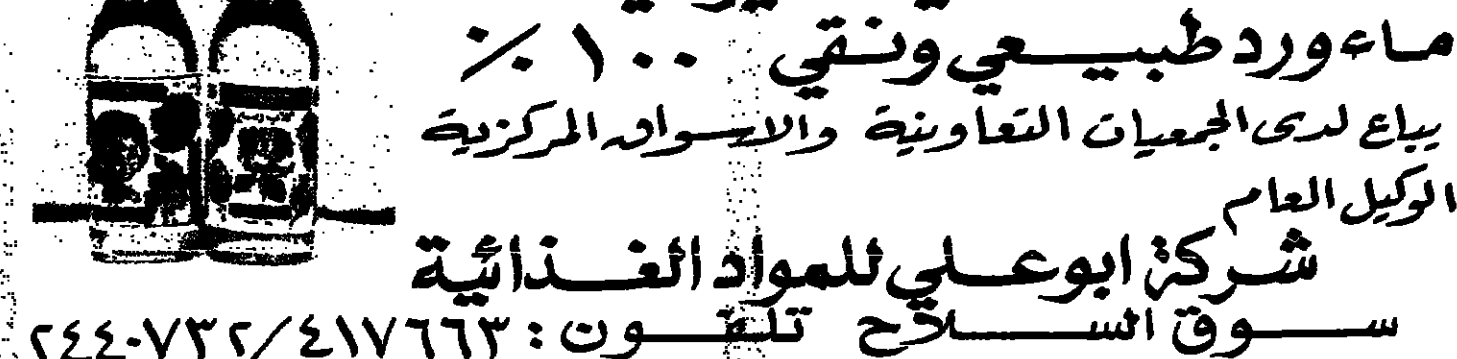 ماء ورد طبيعي ونقي ١٠٠ ٪
يباع لدى الجمعيات التعاونية والاسواق المركزية
الوكيل العام
شركة ابوعلي للمواد الغذائية
سوق السلاح تلفون : ٢٤٤٠٧٣٢/٤١٧٦٦٣